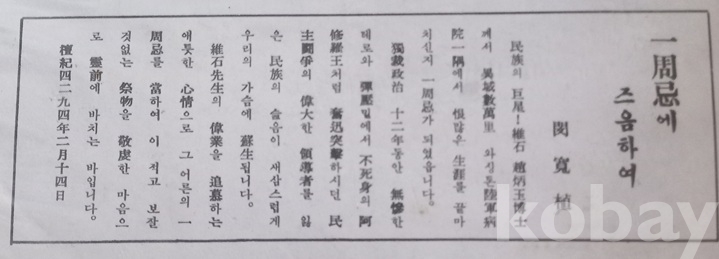 一周忌에
즈음하여
閔寬植
民族의 巨星! 維石 趙炳玉博士
께서 異域數萬里 와싱톤陸軍病
院一隅에서 恨많은 生涯를 끝마
치신지 一周忌가 되었읍니다.
獨裁政治 十二年동안 無慘한
테로와 彈壓밑에서 不死身의 阿
修羅王처럼 奮迅突擊하시던 民
主鬪爭의 偉大한 領導者를 잃
은 民族의 슬음이 새삼스럽게
우리의 가슴에 蘇生됩니다.
維石先生의 偉業을 追慕하는
애틋한 心情으로 그 어른의 一
周忌를 當하여 이 적고 보잘
것없는 祭物을 敬虔한 마음으
로 靈前에 바치는 바입니다.
檀紀四二九四年二月十四日
kobay